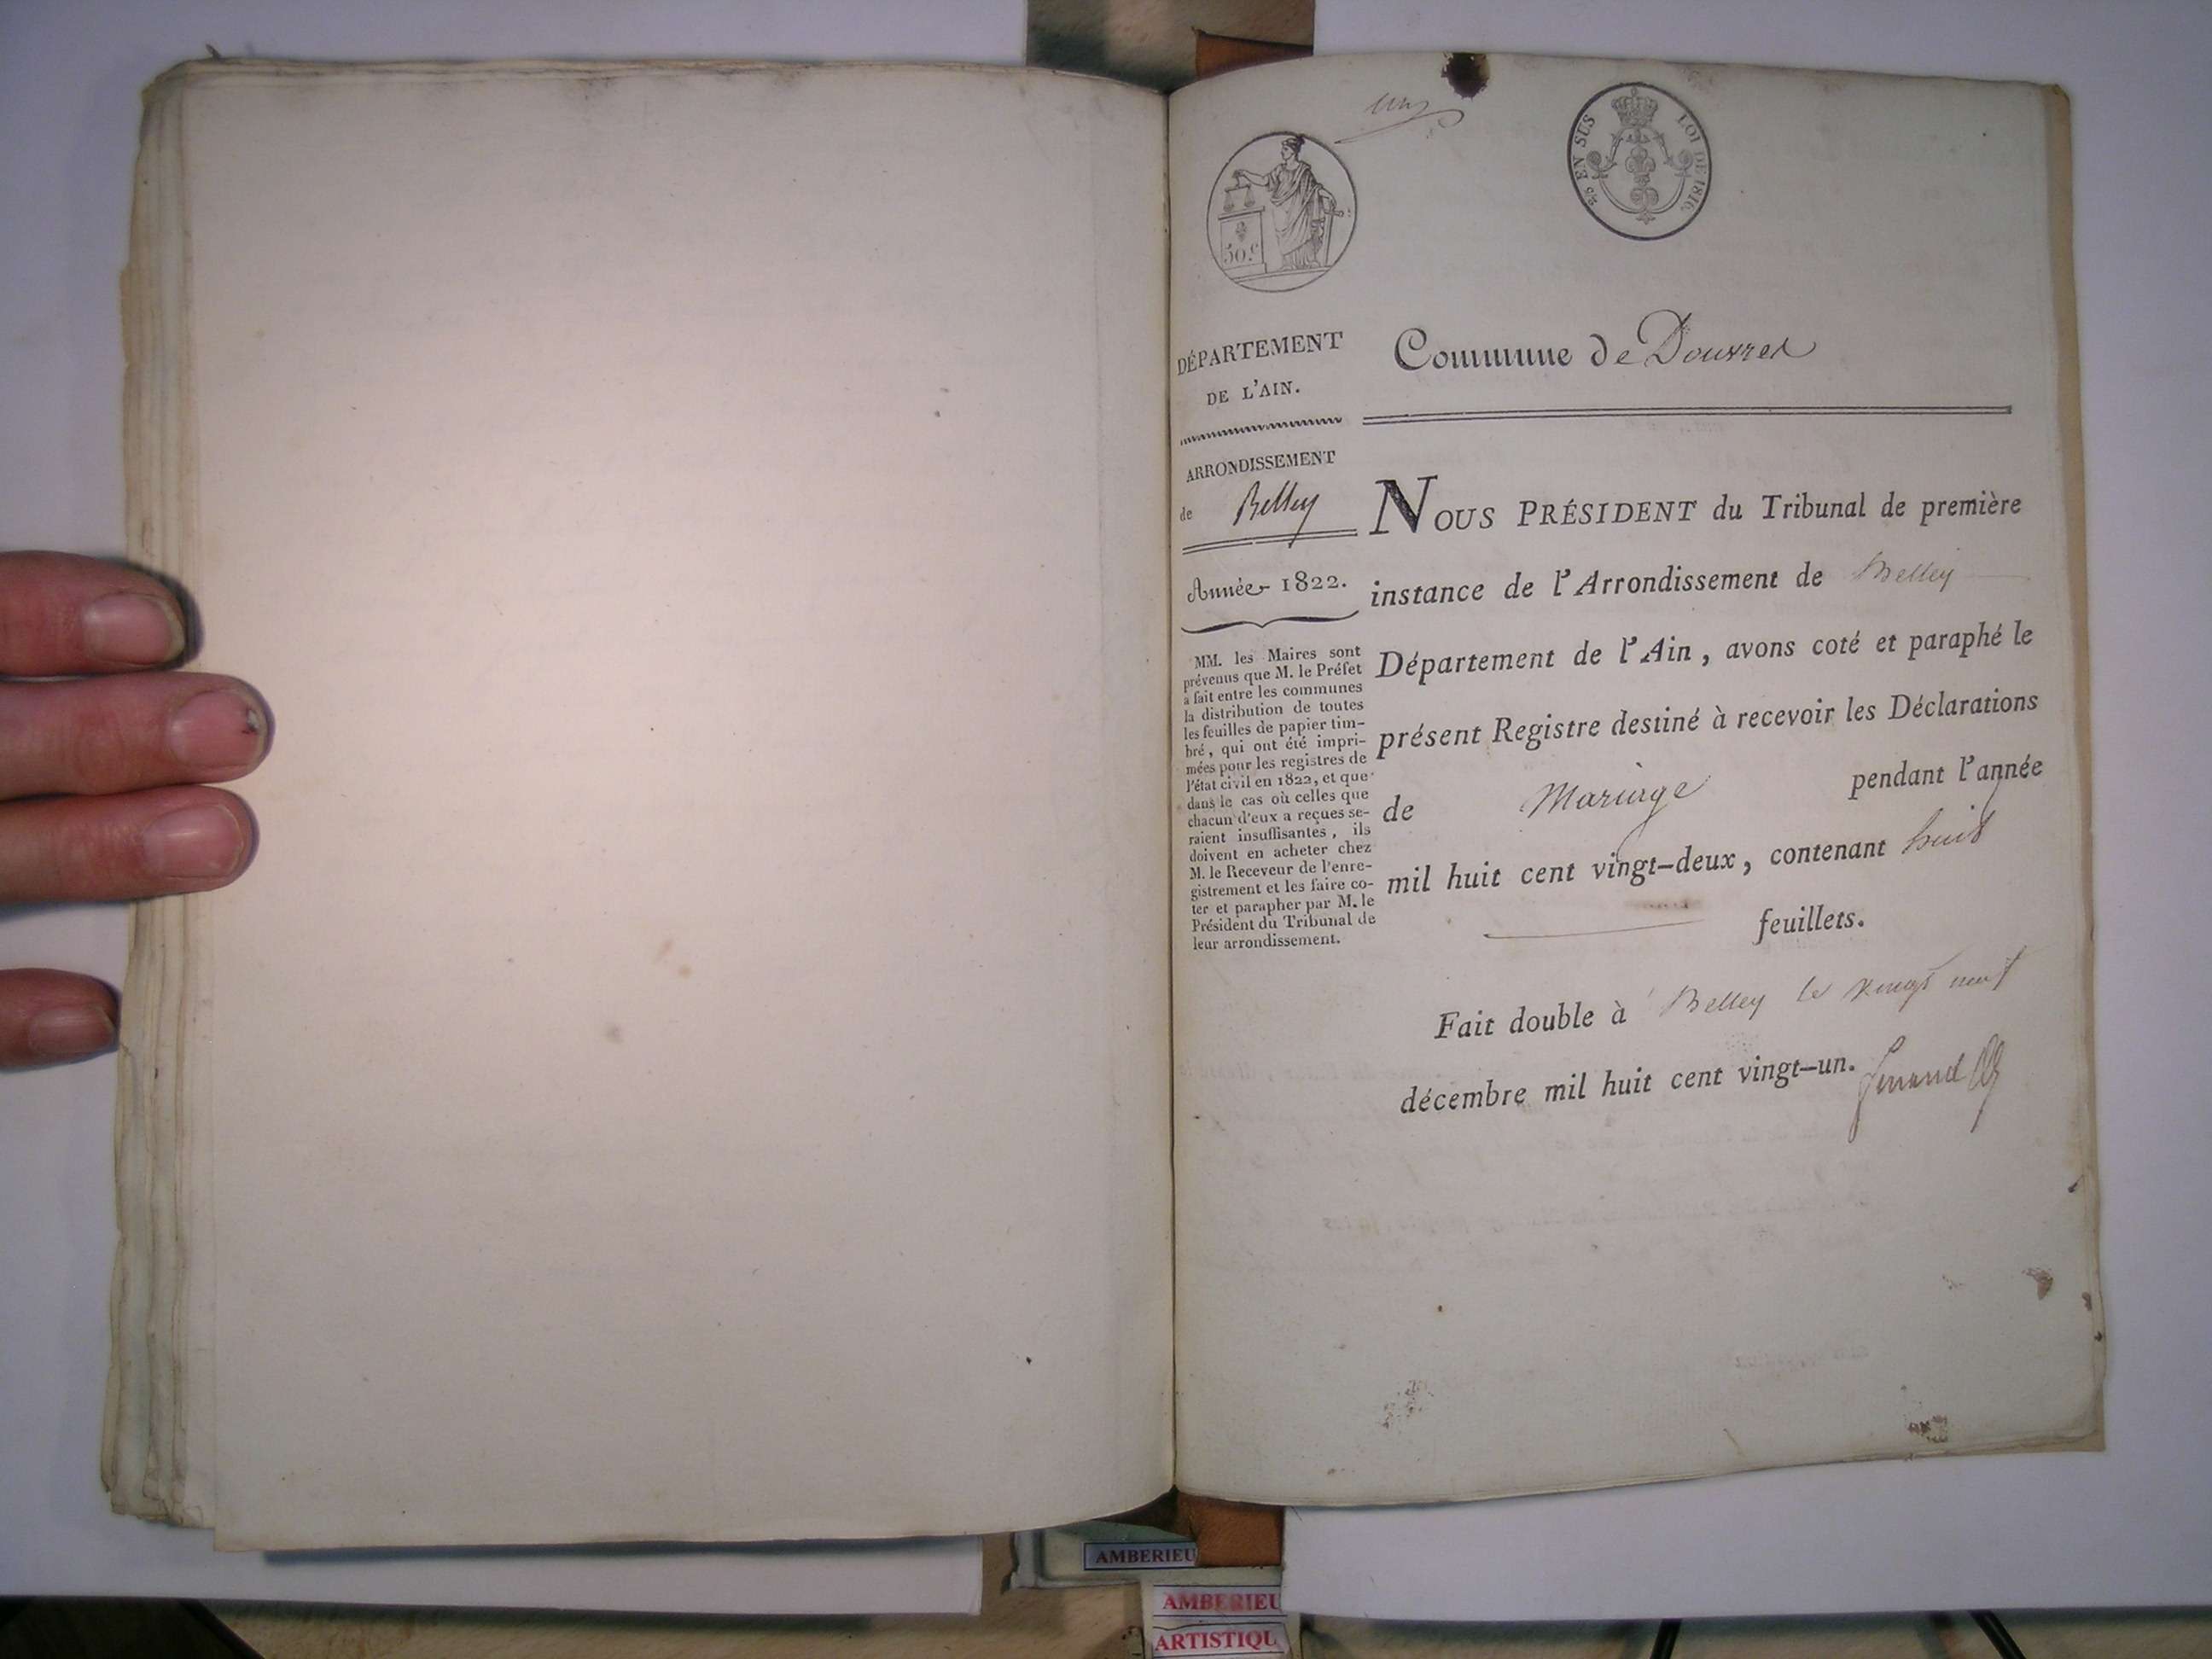 un
50.c
25 EN SUS LOI DE 1816.
DÉPARTEMENT
DE L'AIN.
Commune de Douvres
ARRONDISSEMENT
de Belley
Année 1822.
MM. les Maires sont
prévenus que M. le Préfet
a fait entre les communes
la distribution de toutes
les feuilles de papier tim-
bré, qui ont été impri-
mées pour les registres de
l'état civil en 1822, et que
dans le cas où celles que
chacun d'eux a reçues se-
raient insuffisantes, ils
doivent en acheter chez
M. le Receveur de l'enre-
gistrement et les faire co-
ter et parapher par M. le
Président du Tribunal de
leur arrondissement.
NOUS PRÉSIDENT du Tribunal de première
instance de l'Arrondissement de Belley
Département de l'Ain, avons coté et paraphé le
présent Registre destiné à recevoir les Déclarations
de Mariage pendant l'année
mil huit cent vingt-deux, contenant huit
feuillets.
Fait double à Belley le vingt neuf
décembre mil huit cent vingt-un.
AMBERIEU
AMBERIEU
ARTISTIQU